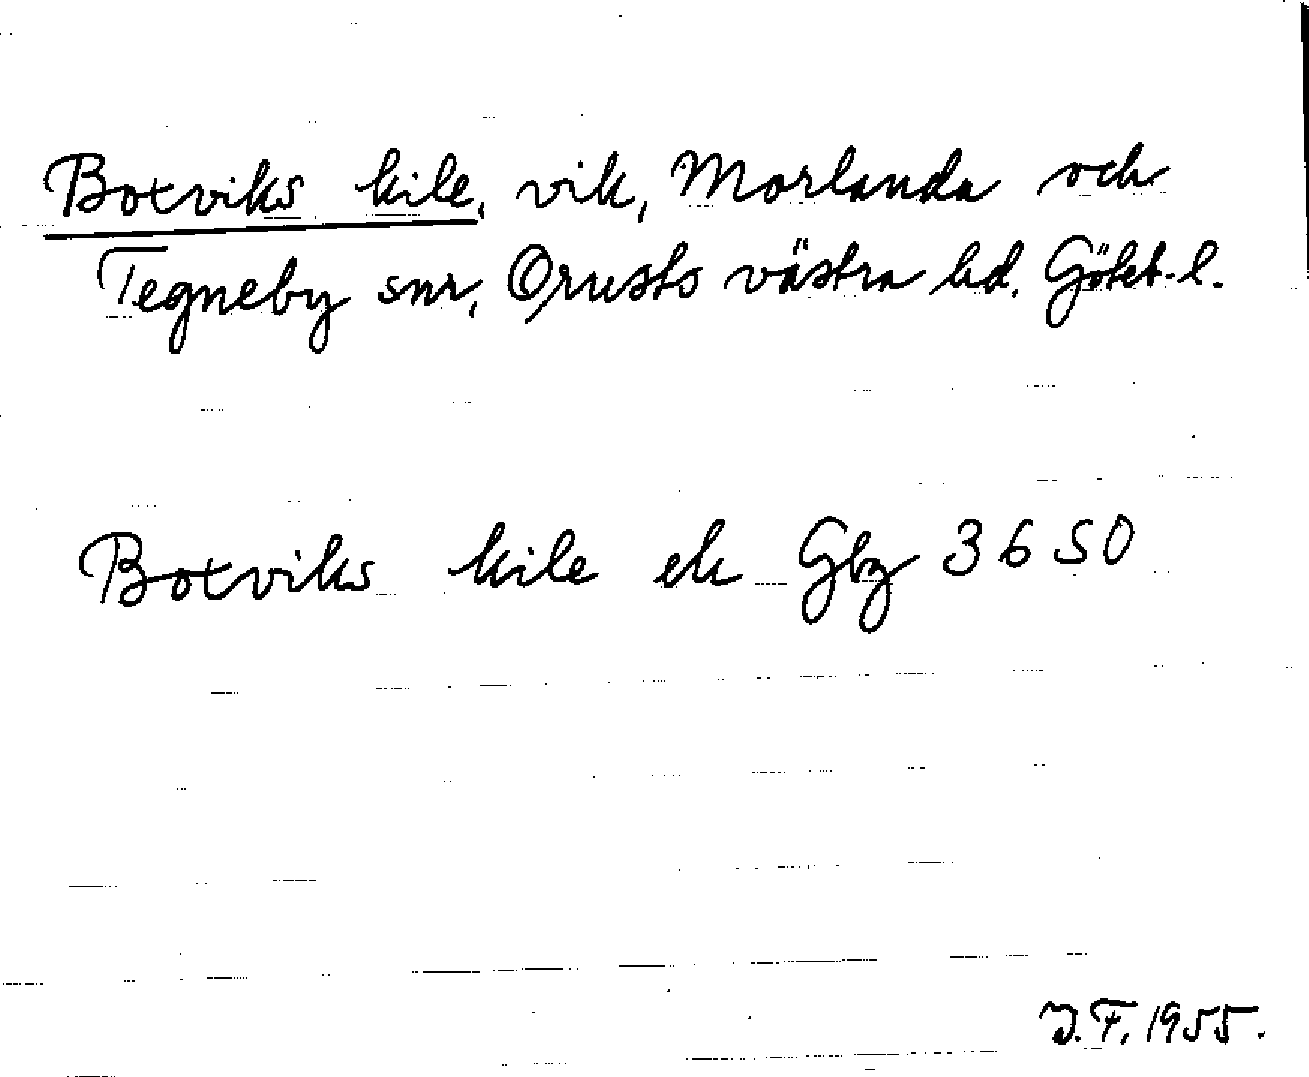 Botviks kile, vik, Morlanda och
Tegneby snr, Orusts västra hd. Göteb. l.
Botviks kile ek Gbg 3650
J.F. 1955.